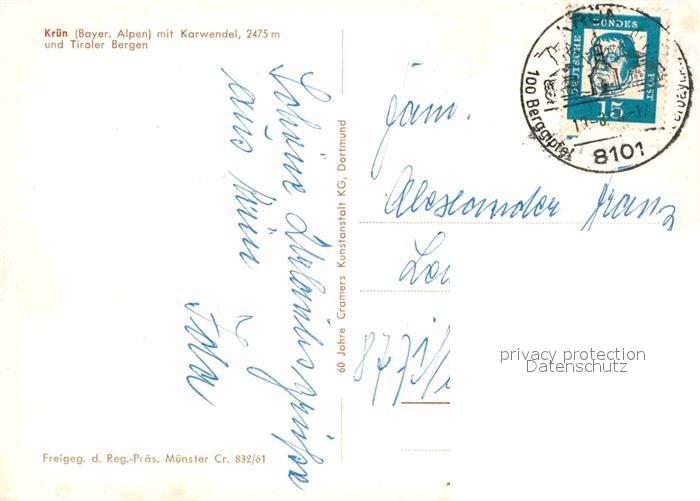 Krün (Bayer. Alpen) mit Karwendel, 2475 m
und Tiroler Bergen
Schöne Urlaubsgrüße
aus Krün
60 Jahre Cramers Kunstanstalt KG, Dortmund
Freigeg. d. Reg.-Präs. Münster Cr. 832/61
DEUTSCHE BUNDESPOST
15
100 Berggipfel
8101
Fam.
Alexander Franz
privacy protection
Datenschutz